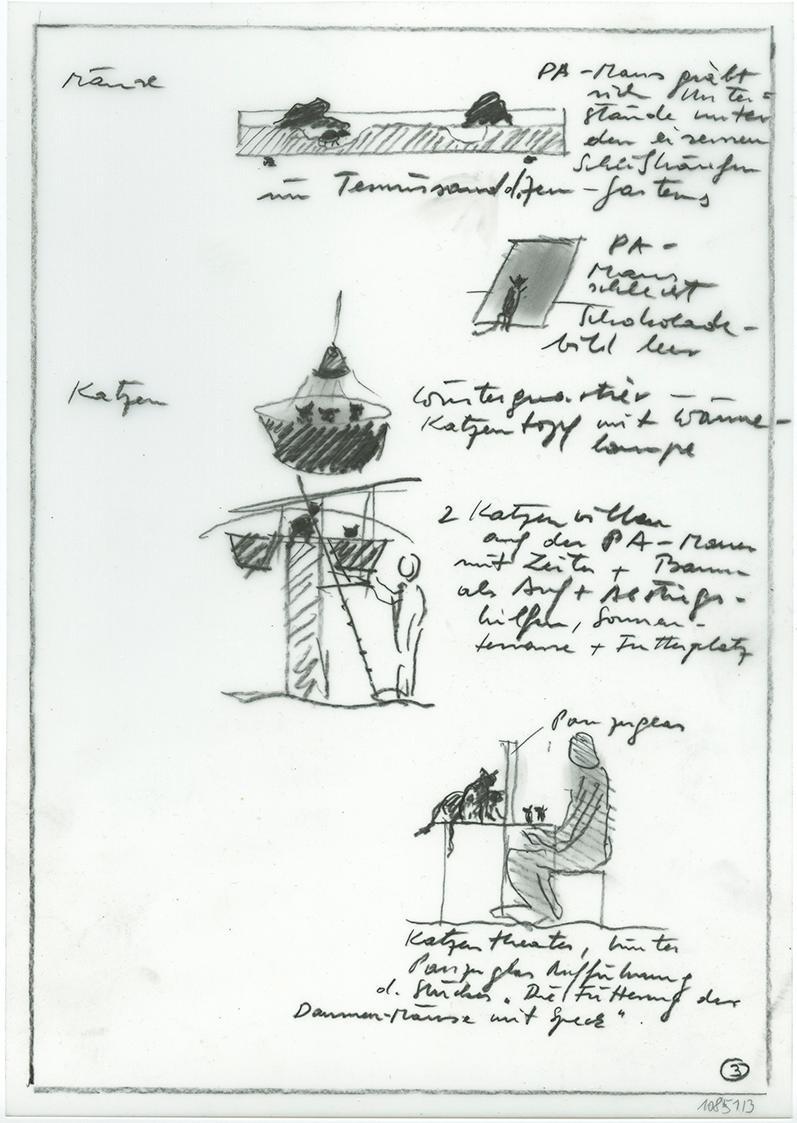 Mäuse
PA-Maus gräbt
sich Unter=
stände unter
den eisernen
im Tennissand
PA-
Maus
schleckt
Schokolade-
bild leer
Katzen
Winterquartier -
Katzentopf mit Wärme-
lampe
2 Katzenvillen
auf der PA-Mauer
mit Leiter + Baum
als Auf + Abstiegs-
hilfen, Sonnen-
terrasse + Futterplatz
Panzerglas
Katzentheater, hinter
Panzerglas Aufführung
d. Stückes „Die Fütterung der
Daumen-Mäuse mit Speck".
3
1085113